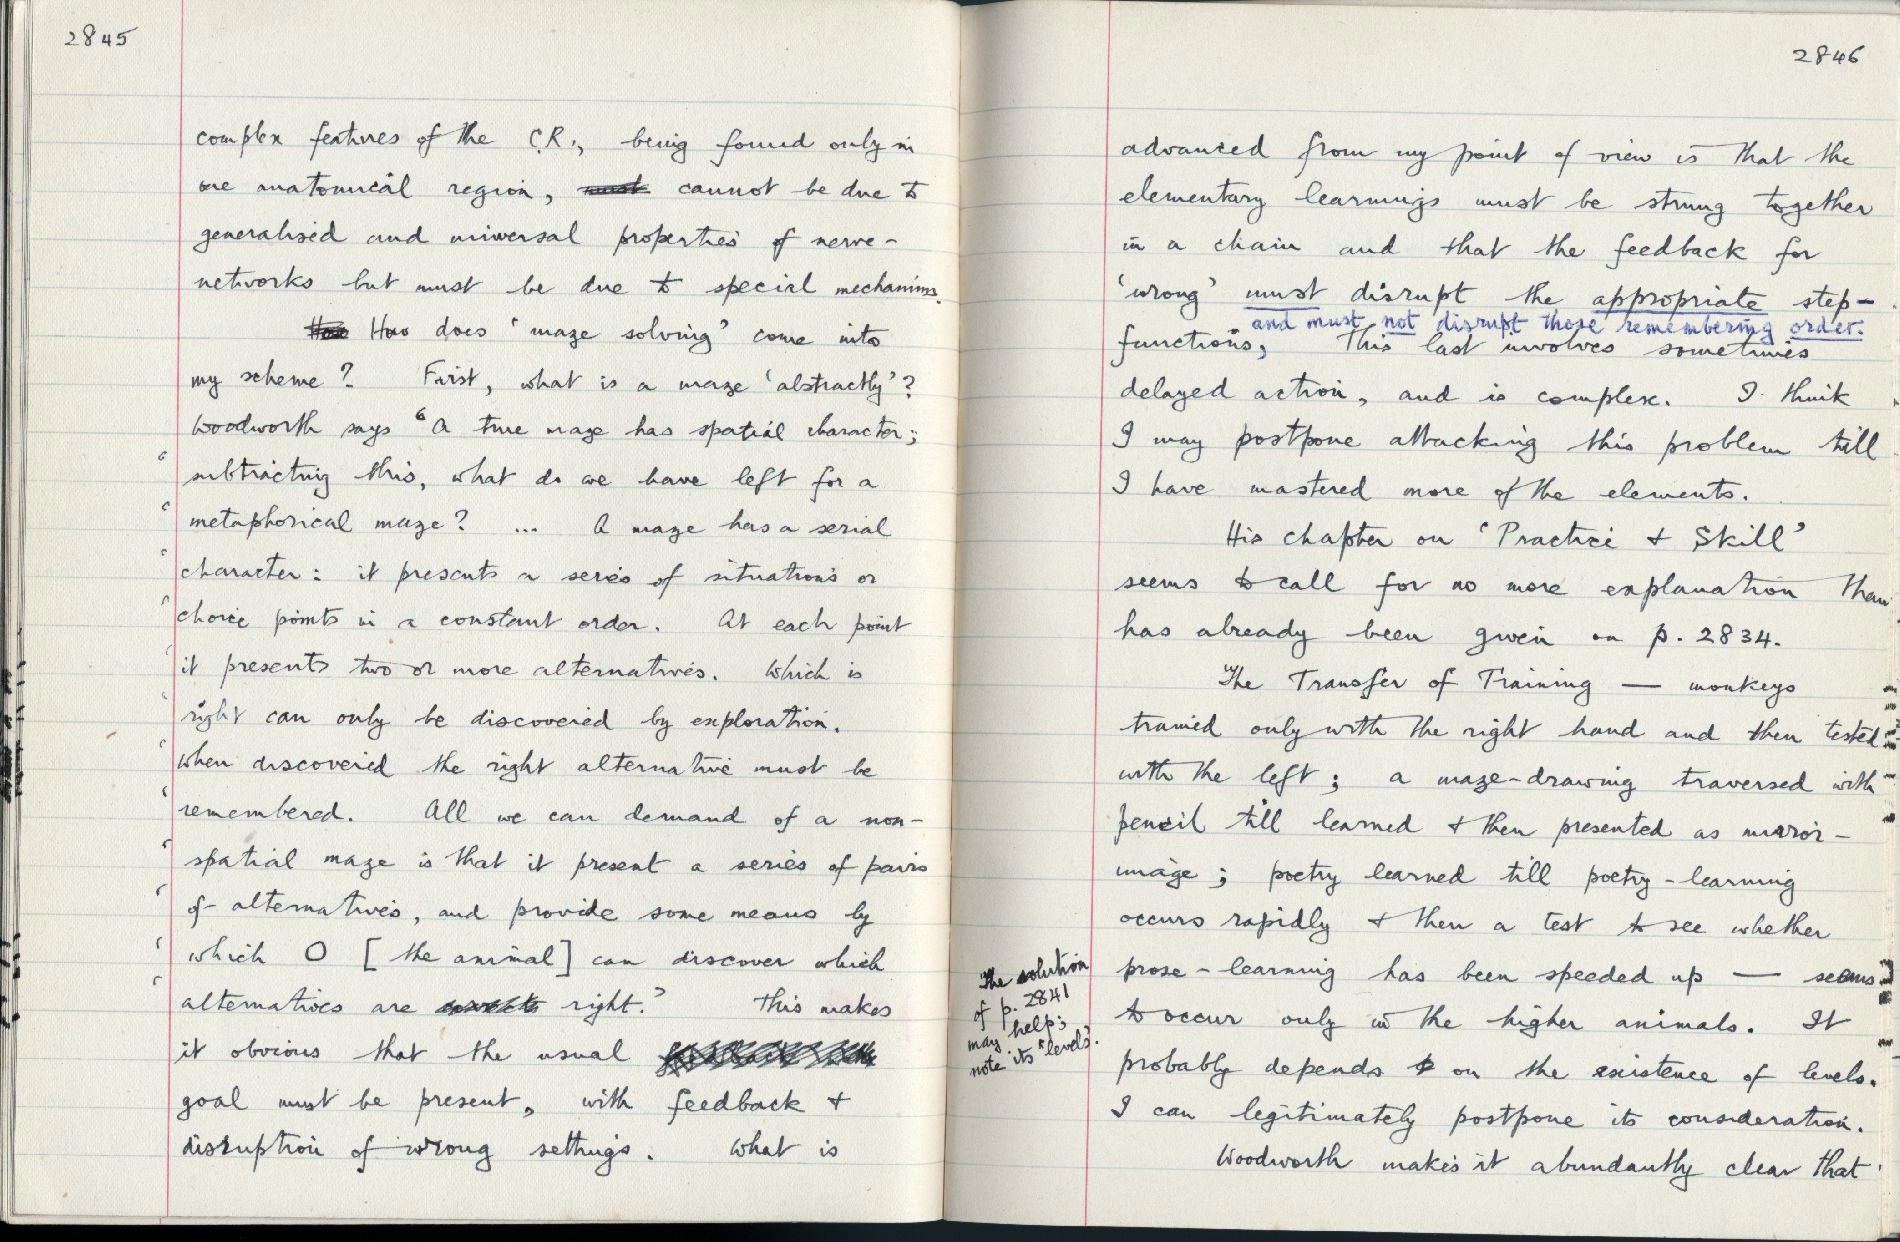 2845
complex features of the C.R., being found only in
one anatomical region, must cannot be due to
generalised and universal properties of nerve-
networks but must be due to special mechanisms.
How How does 'maze solving' come into
my scheme? First, what is a maze 'abstractly'?
Woodworth says "A true maze has spatial character;
' subtracting this, what do we have left for a
' metaphorical maze? ... A maze has a serial
' character: it presents a series of situations or
' choice points in a constant order. At each point
' it presents two or more alternatives. Which is
' right can only be discovered by exploration.
' When discovered the right alternative must be
' remembered. All we can demand of a non-
' spatial maze is that it present a series of pairs
' of alternatives, and provide some means by
' which O [the animal] can discover which
alternatives are right.' This makes
it obvious that the usual
goal must be present, with feedback &
disruption of wrong settings. What is
2846
advanced from my point of view is that the
elementary learnings must be strung together
in a chain and that the feedback for
'wrong' must disrupt the appropriate step-
and must not disrupt those remembering order.
functions, This last involves sometimes
delayed action, and is complex. I think
I may postpone attacking this problem till
I have mastered more of the elements.
His chapter on 'Practice & Skill'
seems to call for no more explanation than
has already been given on p. 2834.
The Transfer of Training — monkeys
trained only with the right hand and then tested
with the left; a maze-drawing traversed with
pencil till learned & then presented as mirror-
image; poetry learned till poetry-learning
occurs rapidly & then a test to see whether
prose-learning has been speeded up — seems
to occur only in the higher animals. It
probably depends on the existence of levels.
I can legitimately postpone its consideration.
Woodworth makes it abundantly clear that
The solution
of p. 2841
may help;
note its 'levels'.